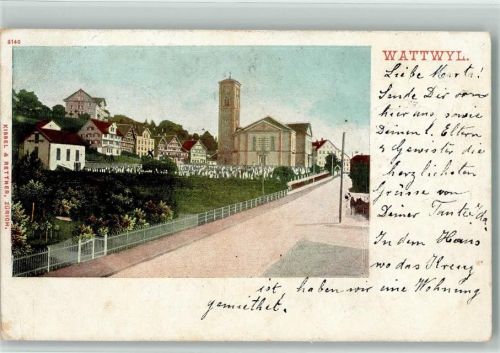 8140
WATTWYL.
KISSEL & RETTNER, ZÜRICH.
Liebe Marta!
Sende Dir von
hier aus, sowie
Deinen l. Eltern
& Gewister die
herzlichsten
Grüsse von
Deiner Tante
In dem Haus
wo das Kreuz
ist, haben wir eine Wohnung
gemiethet.